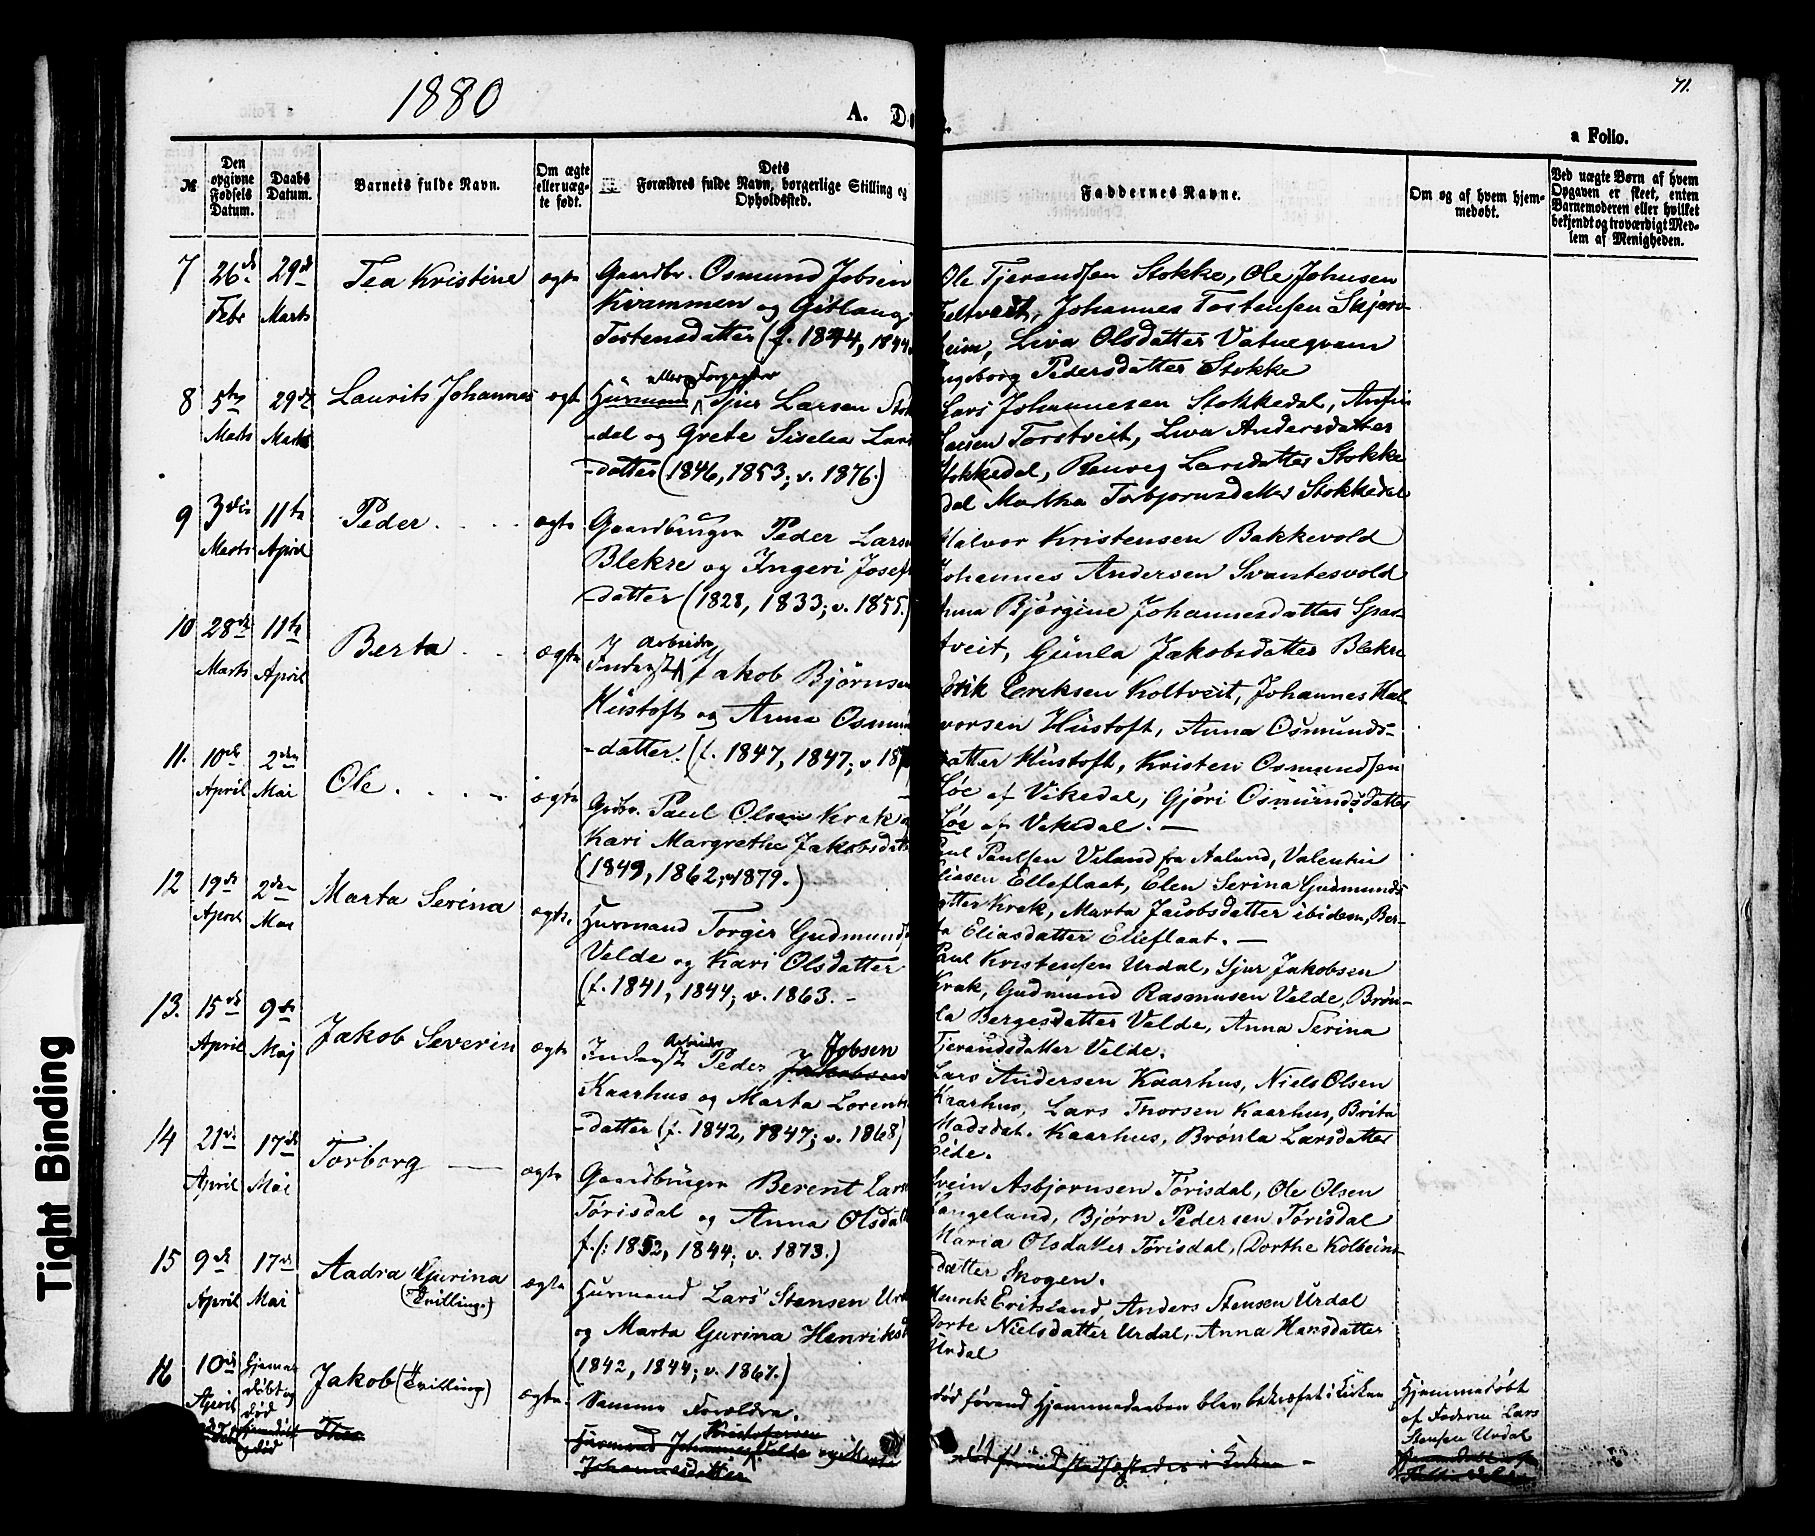 71.
1880
A. Dø
a Folio.
№
Den opgivne Fødsels Datum.
Daabs Datum.
Barnets fulde Navn.
Om ægte eller uægte født.
Dets Forældres fulde Navn, borgerlige Stilling og Opholdssted.
Faddernes Navne.
Om og af hvem hjemmedøbt.
Ved uægte Børn af hvem Opgaven er skeet, enten Barnemoderen eller hvilket bekjendt og troværdigt Medlem af Menigheden.
7
26de Febr
29de Marts
Tea Kristine
ægte
Gaardbr. Osmund Jobsen
Kvammen og Gitlaug
Tostensdatter (f. 1844, 1844
Ole Tjerandsen Stokke, Ole Johnsen
eltveit, Johannes Tostensen Skjerv-
heim, Liva Olsdatter Vatneqvam
ngeborg Pedersdatter Stokke
8
5te Marts
29de Marts
Laurits Johannes
ægte
Husmand Sjur Larsen Stok
-dal og Grete Siselia Lars
-datter (1846, 1853; v. 1876.)
Lars Johannesen Stokkedal, Anfin
Larsen Torstveit, Liva Andersdatter
Stokkedal, Ranveg Larsdatter Stokke
dal Martha Torbjørnsdatter Stokkedal
9
3die Marts
11te April
Peder
ægte
Gaardbruger Peder Larsen
Blekre og Ingeri Josefs
-datter (1828, 1833; v. 1855.)
Halvor Kristensen Bakkevold
Johannes Andersen Svantesvold
Anna Bjørgine Johannesdatter
tveit, Gunla Jakobsdatter Blekre
10
28de Marts
11te April
Berta
ægte
Arbeider
Inderst Jakob Bjørnsen
Hustoft og Anna Osmun
-datter. (f. 1847, 1847; v. 18
Erik Eriksen Koltveit, Johannes Hal-
vorsen Hustoft, Anna Osmunds-
datter Hustoft, Kristen Osmundsen
Løe af Vikedal, Gjøri Osmundsdatter
Løe af Vikedal. —
11.
10de April
2den Mai
Ole
ægte
Grdbr. Paul Olsen Krak og
Kari Margrethe Jakobsdat
(1849, 1862; v. 1879.)
Paul Paulsen Veland fra Aaland, Valentin
Eliasen Elleflaat, Elen Serina Gudmunds
datter Krak, Marta Jacobsdatter ibidem, Ber-
ta Eliasdatter Elieflaat. —
12
19de April
2den Mai
Marta Serina
ægte.
Husmand Torger Gudmunds
Velde og Kari Olsdatter
(f. 1841, 1844; v. 1863. –
Paul Kristensen Urdal, Sjur Jakobsen
Krak, Gudmund Rasmusen Velde, Brøn-
la Bergesdatter Velde, Anna Serina
Tjerandsdatter Velde.
13.
15de April
9de Maj
Jakob Severin
ægte
Arbeider Jobsen
Inderst Peder Jakobsen
Kaarhus og Marta Lorents
-datter (f. 1842, 1847; v. 1868)
Lars Andersen Kaarhus, Niels Olsen
Kaarhus, Lars Thorsen Kaarhus, Brita
Madsdat. Kaarhus, Brønla Larsdatter
Eide.
14
21de April
17de Mai
Torborg
ægte
Gaardbruger Berent Lars
Tørisdal og Anna Olsdat
f. (: 1852, 1844; v. 1873.)
Svein Asbjørnsen Tørisdal, Ole Olsen
Langeland, Bjørn Pedersen Tørisdal
Maria Olsdatter Tørisdal, Dorthe Kolbeins
-datter Skogen.
15
9de April
17de Mai
Aadra Gurina
(Tvilling.)
ægte
Husmand Lars Stensen Urd
og Marta Gurina Henriks
(1842, 1844; v. 1867.)
Henrik Eritsland, Anders Stensen Urdal
Dorte Nielsdatter Urdal, Anna Hansdatter
Urdal
16
10de April
Hjemmedøbt og død
Jakob (Tvilling)
ægte
Samme Forældre.
død førend Hjemmedaaben blev bekræftet i Kirken
Hjemmedøbt
af Faderen Lars
Stensen Urdal
Kristofersen
Husmand Johannes Velde og Marta
Johannesdatter
død førend stadfæstedes i Kirken –
Tight Binding